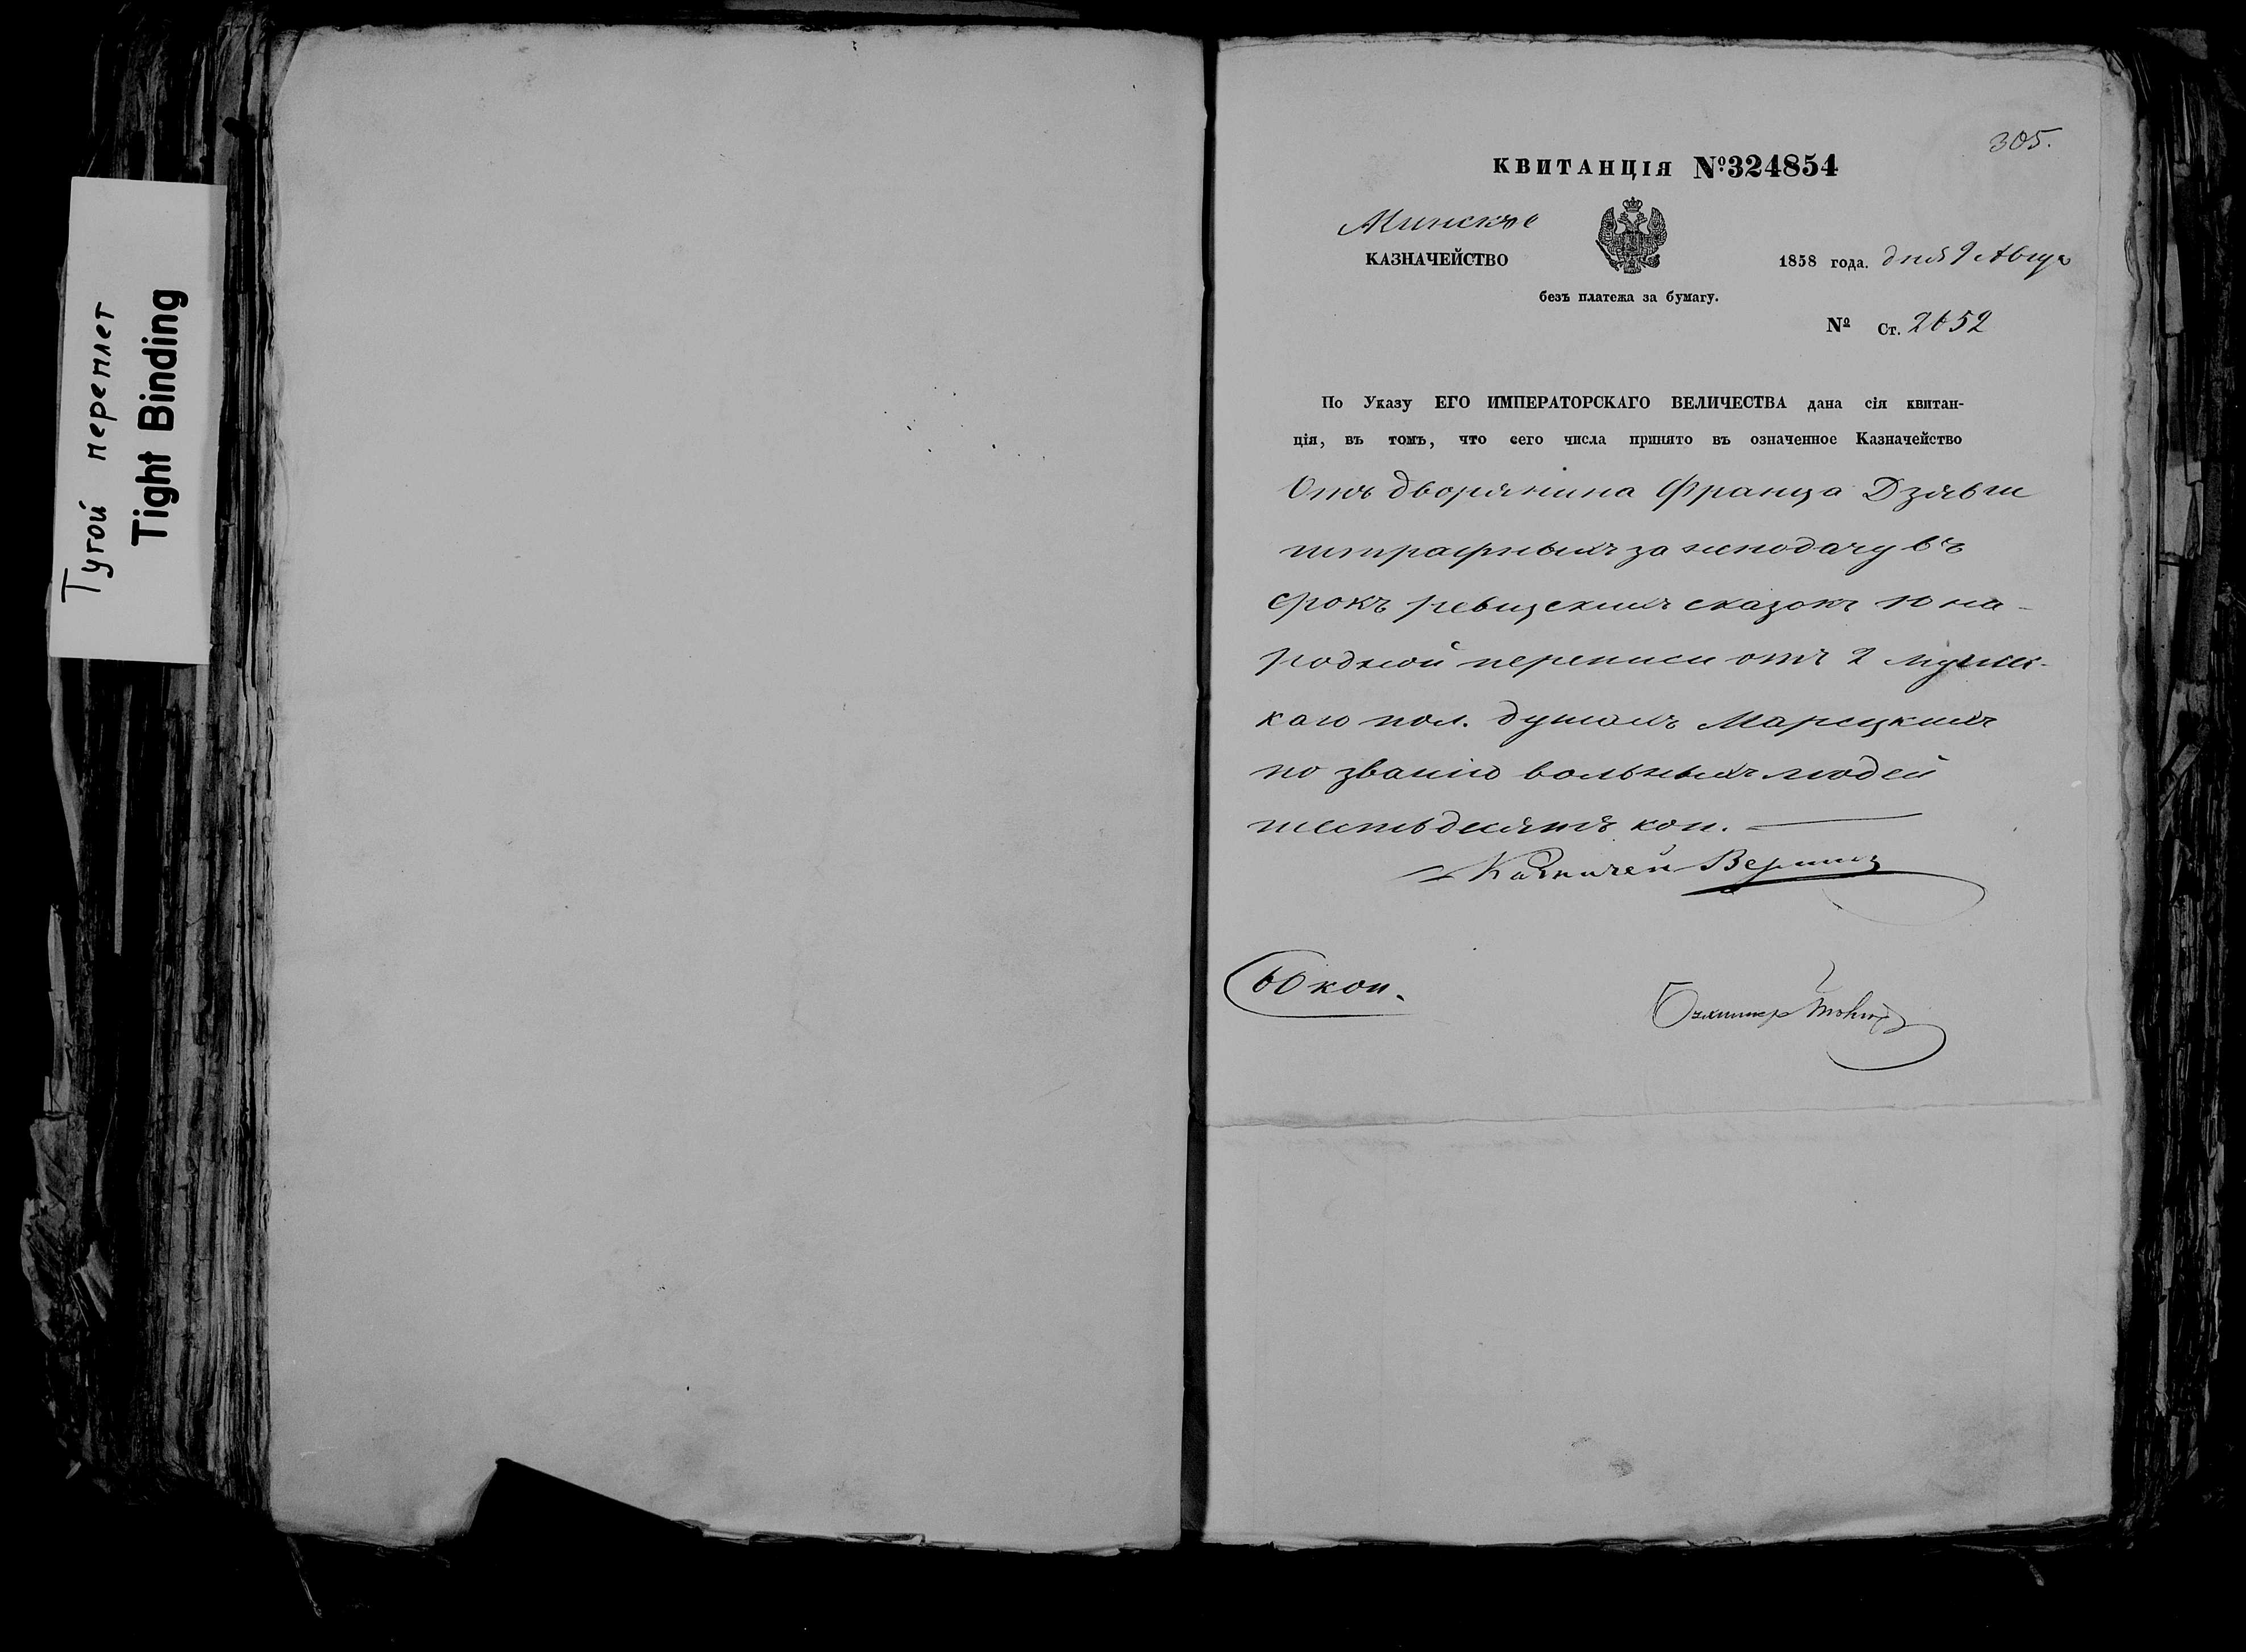 Тугой переплет
Tight Binding
305.
КВИТАНЦІЯ №324854
Минское
КАЗНАЧЕЙСТВО
1858 года. дня 9 Авгус
безъ платежа за бумагу.
№ Ст. 2652
По Указу ЕГО ИМПЕРАТОРСКАГО ВЕЛИЧЕСТВА дана сія квитан-
ція, въ томъ, что сего числа принято въ означенное Казначейство
Отъ дворянина Франца Дзявги
штрафныхъ за неподачу въ
срокъ ревизскихъ сказокъ 10 на-
родной переписи отъ 2 мужес-
каго пол. душамъ Марецкихъ
по званію вольныхъ людей
шестьдесятъ коп.
Казначей
60 коп.
Бухгалтер